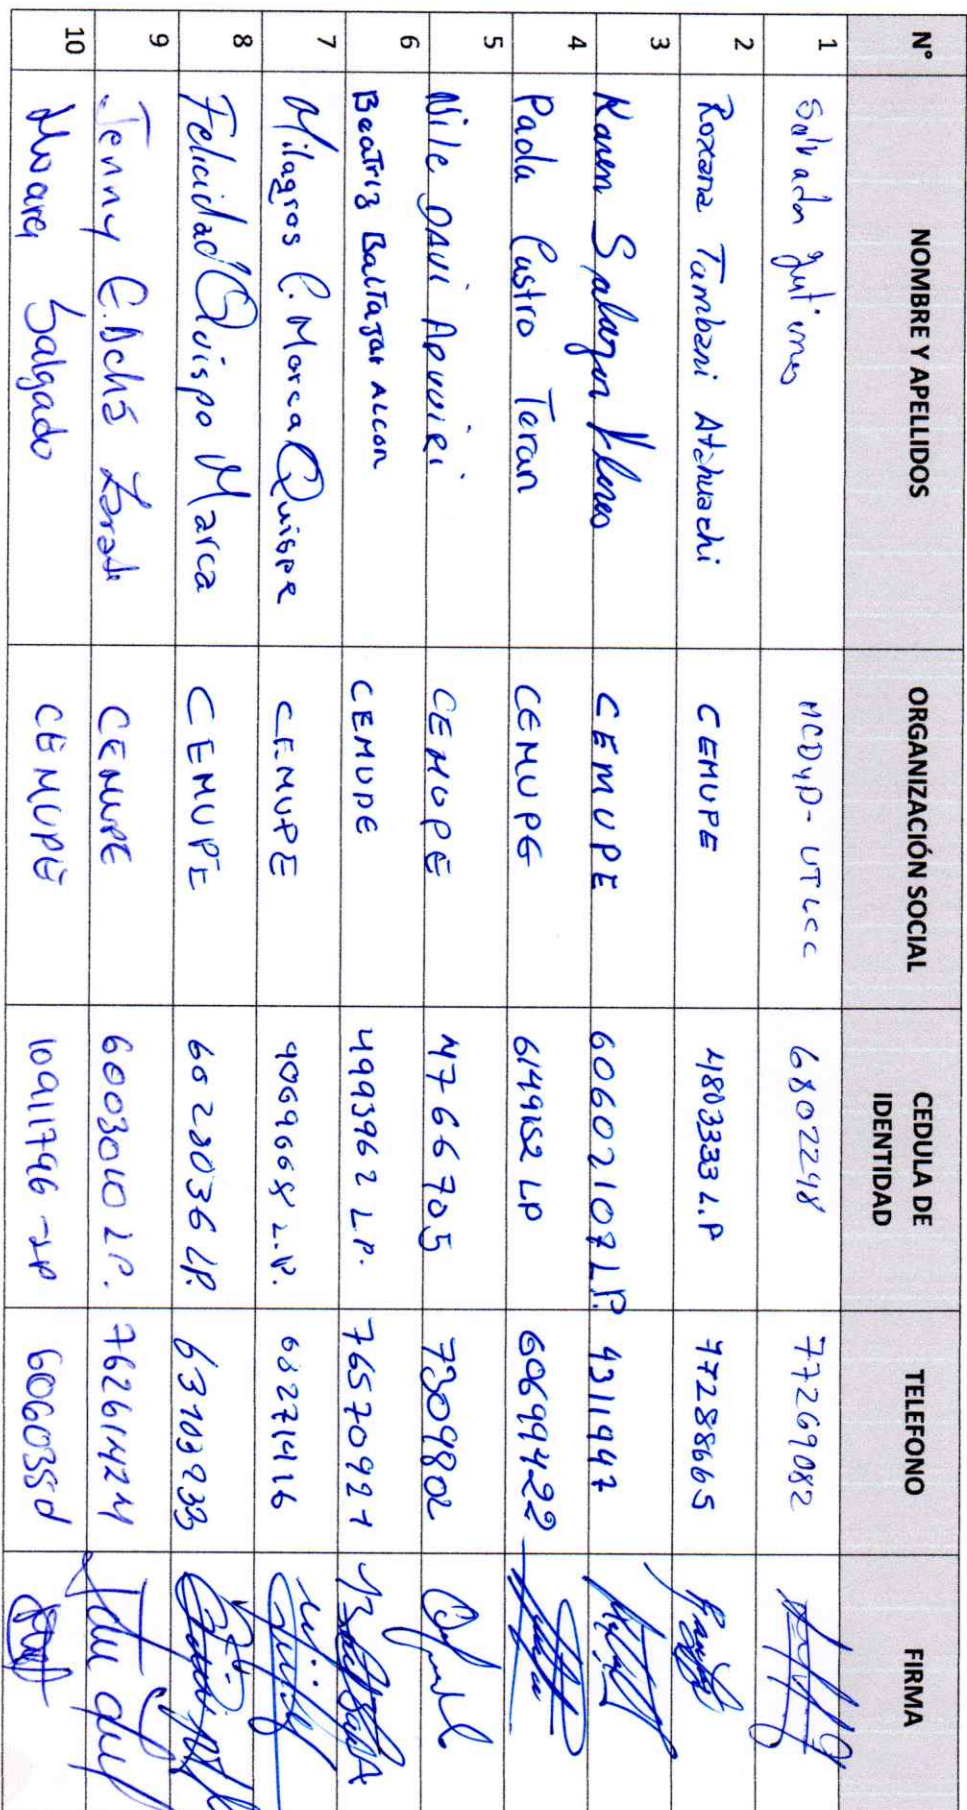 N° NOMBRE Y APELLIDOS ORGANIZACIÓN SOCIAL CEDULA DE IDENTIDAD TELEFONO FIRMA
1 MCDyD - UTLCC 6802248 77269082
2 Roxana Tambani Atahuachi CEMUPE 4803333 L.P 77288665
3 Karen Salazar CEMUPE 60602107 L.P. 4311947
4 Castro Teran CEMUPE 6149152 LP 60699422
5 CEMUPE 4766705 7309802
6 Beatriz Baltazar Alcon CEMUPE 4993962 L.P. 76570921
7 Milagros C. Marca Quispe CEMUPE 9069668 L.P. 68271416
8 Felicidad Quispo Marca CEMUPE 6028036 LP. 63103933
9 Jenny CEMUPE L.P. 76261424
10 Salgado CEMUPE 10911796 - LP